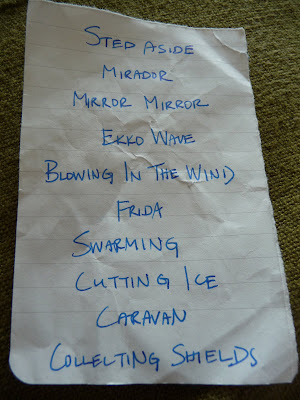 STEP ASIDE
MIRADOR
MIRROR MIRROR
EKKO WAVE
BLOWING IN THE WIND
FRIDA
SWARMING
CUTTING ICE
CARAVAN
COLLECTING SHIELDS